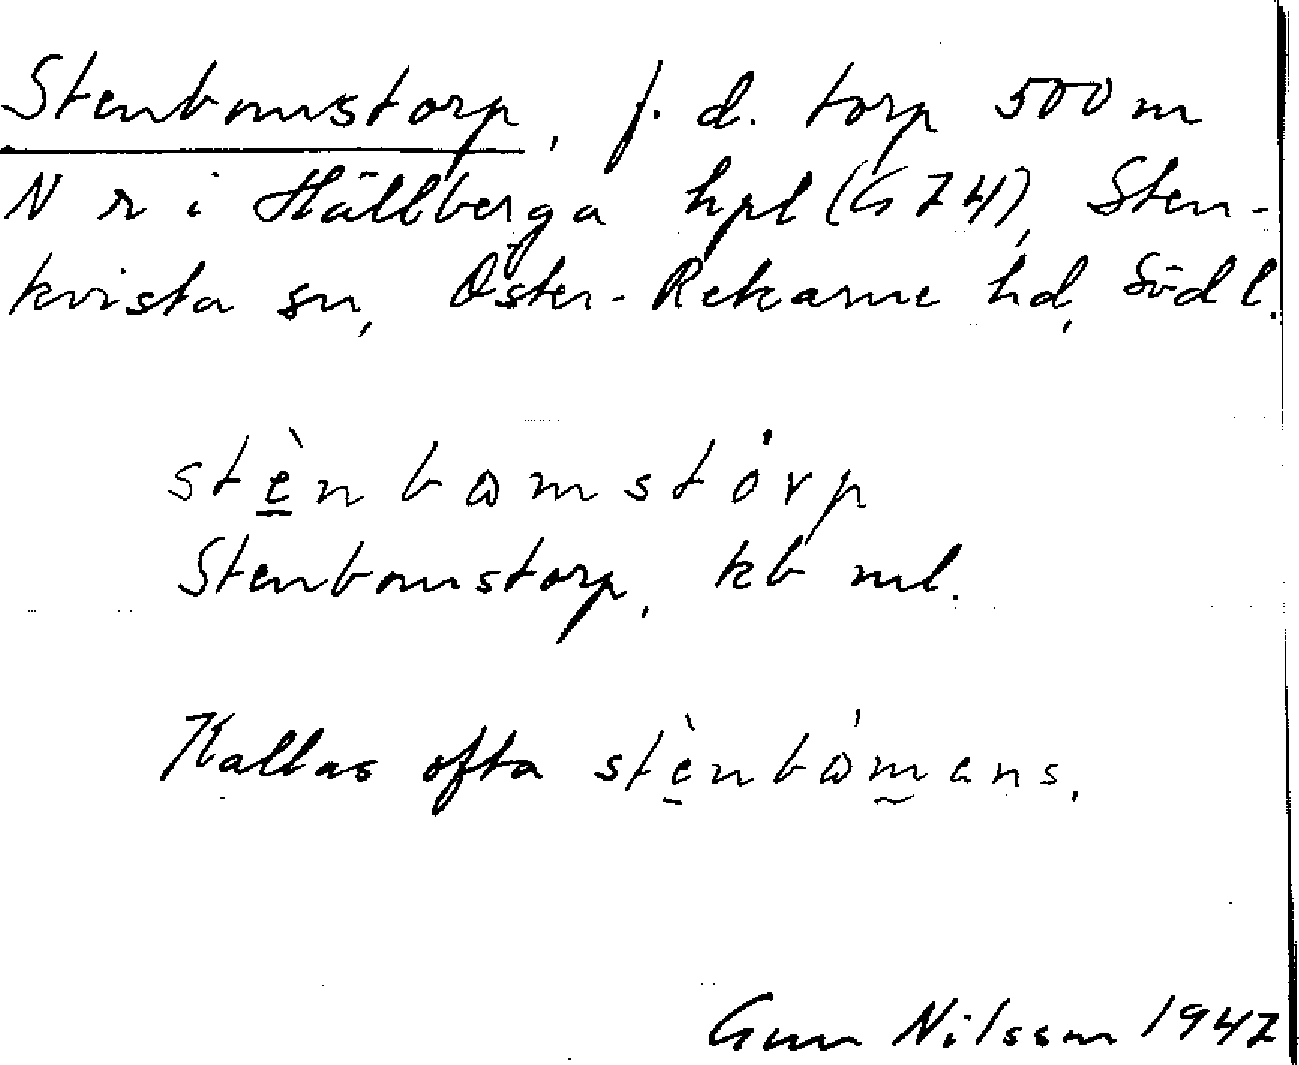 Stenbomstorp, f. d. torp 500 m
N r i Hällberga hpl (GZ4), Sten-
kvista sn, Öster-Rekarne hd, Södl.
stènbωmstȯrp
Stenbomstorp, kb ml.
Kallas ofta stènbω̇mans.
Gun Nilsson 1947